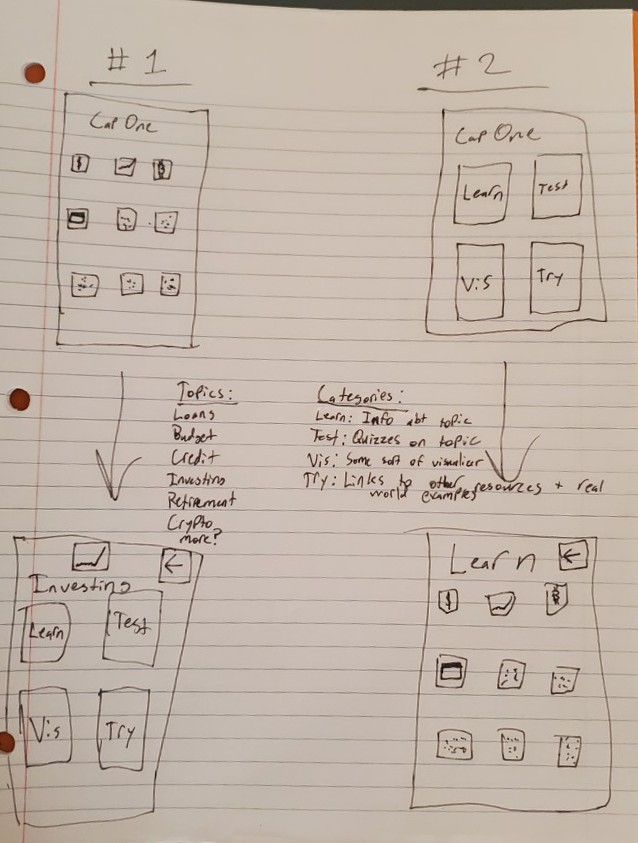 #1
#2
Cap One
Cap One
Learn
Test
Vis
Try
Topics:
Loans
Budget
Credit
Investing
Retirement
Crypto
more?
Categories:
Learn: Info abt topic
Test: Quizzes on topic
Vis: Some sort of visualizer
Try: Links to other resources + real
world examples
Investing
Learn
Test
Vis
Try
Learn